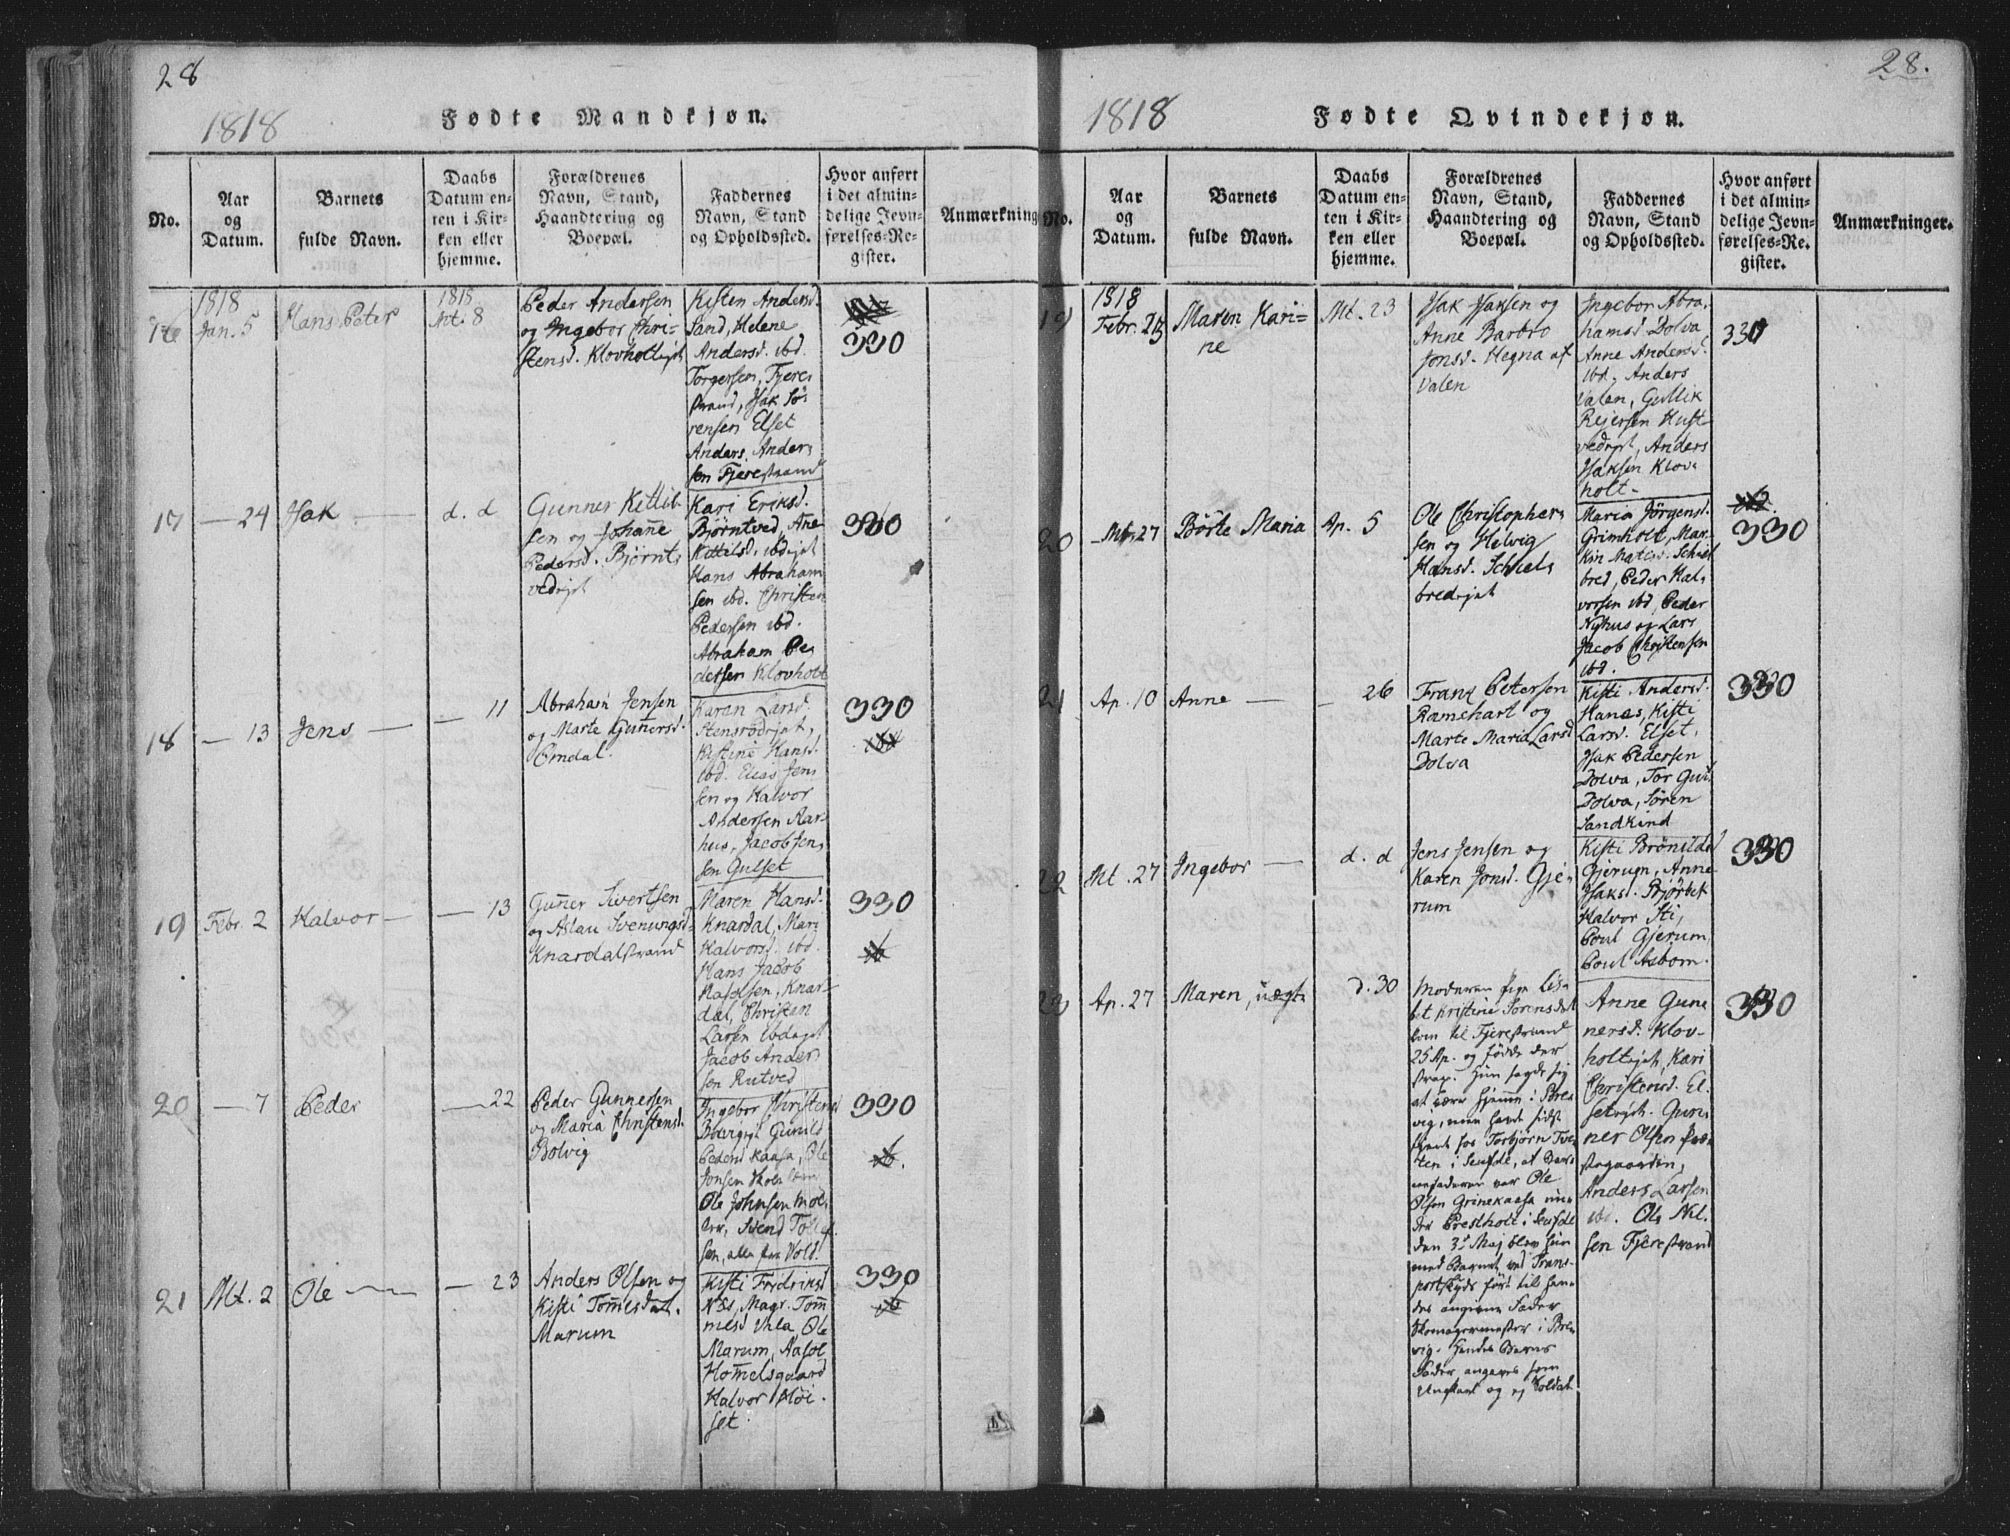 28
1818
Fødte Mandkjøn.
No.
Aar
og
Datum.
Barnets
fulde Navn.
Daabs
Datum en-
ten i Kir-
ken eller
hjemme.
Forældrenes
Navn, Stand,
Haandtering og
Boepæl.
Faddernes
Navn, Stand
og Opholdssted.
Hvor anført
i det almin-
delige Jevn-
førelses-Re-
gister.
Anmærkning
1818
Jan. 5
Hans Peter
1818
Mt. 8
Peder Andersen
og Ingebor Chri-
stensd. Klovholtejet
Kisten Andersd.
Sand, Helene
Andersd. ibd.
Torgersen, Fjere-
strand, Isak Sø-
rensen Elset
Anders. Ander-
sen Fjerestrand
330
17
— 24
Isak
d. d
Gunner Kittil-
sen og Johanne
Pedersd. Bjørnt-
vedejet
Kari Eriksd.
Bjørntved, Ane
Kittilsd. ibdejet
Hans Abraham
sen ibd. Christen
Pedersen ibd.
Abraham Pe-
dersen Klovholt
330
18
— 13
Jens
— 11
Abraham Jensen
og Marte Gunnersd.
Omdal.
Karen Larsd.
Stensrødejet,
Kistine Hansd.
ibd. Elias Jen-
sen og Halvor
Andersen Aar-
hus, Jacob Jen-
sen Gulset
330
19
Febr. 2
Halvor
— 13
Gunner Sivertsen
og Aslau Svenungsd.
Knardalstrand
Maren Hansd.
Knardal, Mari
Halvorsd. ibd.
Hans Jacob
Knar-
dal, Christen
Larsen ibdejet
Jacob Ander-
sen Rutved
330
20
— 7
Peder
— 22
Peder Gunnersen
og Maria Christensd.
Bolvig
Ingebor Christensd
Bolvigejet Gunild
Pedersd Kaasa, Ole
Jonsen
Ole Johnsen Moe-
Svend
sen, alle fra Vold.
330
21
Mt. 2
Ole
— 23
Anders Olsen og
Kisti Tommesdat.
Marum
Kisti Fredriksd
Næs, Magr. Tom
mesd Vala Ole
Marum, Aasol
Hommelsgaard
Halvor Høi-
set.
330
28.
1818
Fødte Qvindekjøn.
No.
Aar
og
Datum.
Barnets
fulde Navn.
Daabs
Datum en-
ten i Kir-
ken eller
hjemme.
Forældrenes
Navn, Stand,
Haandtering og
Boepæl.
Faddernes
Navn, Stand
og Opholdssted.
Hvor anført
i det almin-
delige Jevn-
førelses-Re-
gister.
Anmærkninger.
19
1818
Febr.
Maren Kari=
ne
Mt. 23
Isak Isaksen og
Anne Barbro
Jonsd. Hegna af
Valen
Ingebor Abra-
hamsd Dolva
Anne Andersd.
ibd, Anders
Valen, Gullik
Rejersen Hust-
vedejet, Anders
Isaksen Klov-
holt.
330
20
Mt. 27
Børte Maria
Ap. 5
Ole Christopher-
sen og Helvig
Hansd. Schiel-
bredejet
Maria Jörgensd.
Grimholt, Mar-
Schiel
bred, Peder Hal-
vorsen ibd, Peder
Nyhus og Lars
Jacob Christensen
ibd.
330
21
Ap. 10
Anne
— 26
Frans Petersen
Ramchart og
Marte Maria Larsd
Dolva
Kisti Andersd.
Hanas, Kisti
Larsd. Elset,
Isak Pedersen
Dolva, Tor Gun
Dolva, Søren
Sandkind
330
22
Mt. 27
Ingebor
d. d
Jens Jensen og
Karen Jonsd. Gje-
rum
Kisti Brönildsd
Gjerum, Anne
Isaksd. Bjørkek
Halvor Sti,
Poul Gjerum,
Poul Asbom.
330
23
Ap. 27
Maren, uægte
d. 30
Moderen Pige Lis-
bet Kristine Sörensdat
kom til Fjerestrand
25 Ap. og fødde der
strax. Hun sagde sig
at være hjemme i Bre-
vig, men havt sidst
tjent hos Torbjørn Tve-
ten i Seufde, at Bar-
nefaderen var Ole
Olsen Grinekaasa un-
der Prestholt i Seufde
den 3d Maj blev hun
med Barnet ved Trans-
portskyds ført til hen-
des angivne Fader
Skomagermester i Bre-
vig. Hendes Barns
Fader angaves som
Ungkarl og ej Soldat
Anne Gun-
nersd. Klov-
holtejet, Kari
Christensd. El-
setejet. Gun-
ner Olsen Præ-
stegaarden,
Anders Larsen
ibd. Ole Nil-
sen Fjerestrand
330